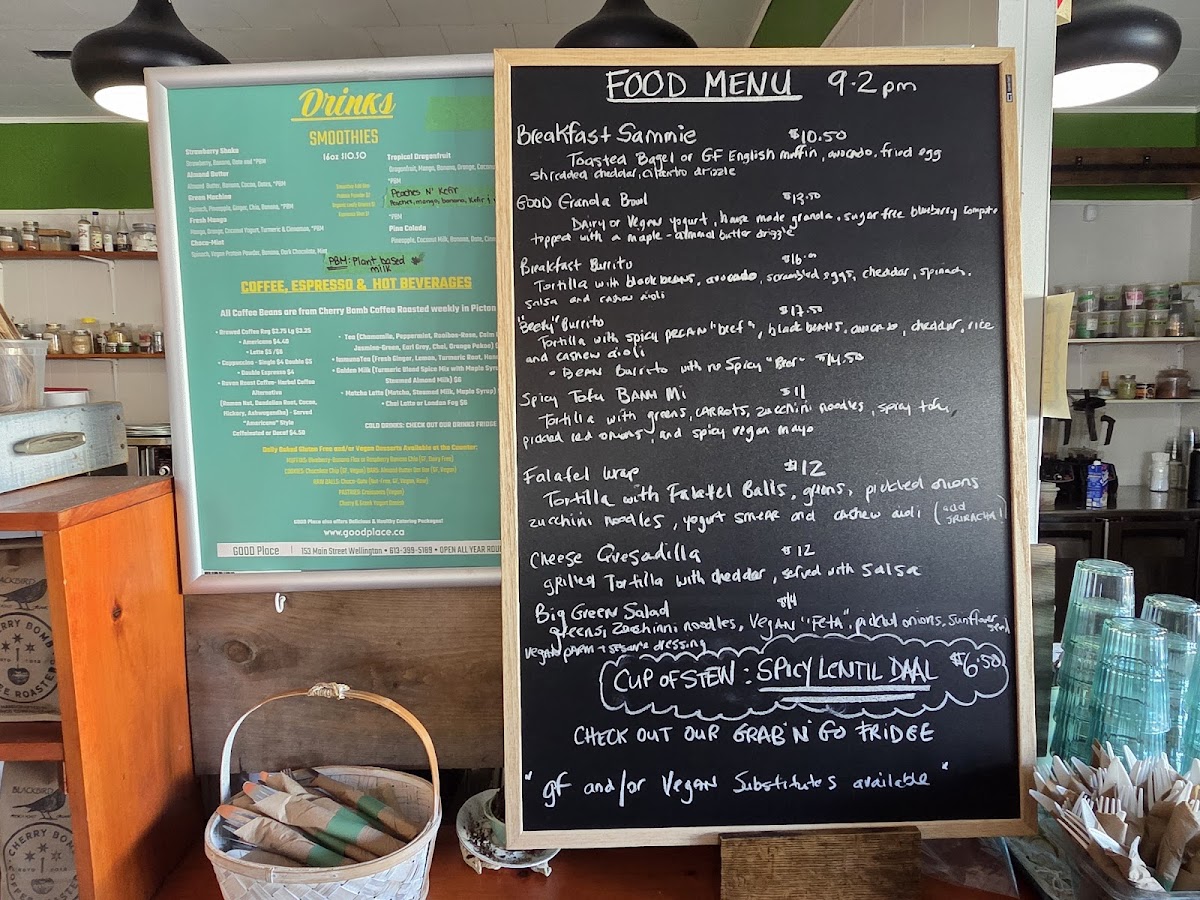 Drinks
SMOOTHIES
16oz $10.50
Strawberry Shake
Strawberry, Banana, Date and *PBM
Almond Butter
Almond Butter, Banana, Cacao, Dates, *PBM
Green Machine
Spinach, Pineapple, Ginger, Chia, Banana, *PBM
Fresh Mango
Mango, Orange, Coconut Yogurt, Turmeric & Cinnamon, *PBM
Choco-Mint
Spinach, Vegan Protein Powder, Banana, Dark Chocolate, Mint
Tropical Dragonfruit
Dragonfruit, Mango, Banana, Orange, Coconut
*PBM
Peaches N' Kefir
Peaches, mango, banana, Kefir
*PBM
Pina Colada
Pineapple, Coconut Milk, Banana, Date,
PBM: Plant based
milk
COFFEE, ESPRESSO & HOT BEVERAGES
All Coffee Beans are from Cherry Bomb Coffee Roasted weekly in Picton
• Brewed Coffee Reg $2.75 Lg $3.25
• Americano $4.40
• Latte $5 /$6
• Cappuccino - Single $4 Double $5
• Double Espresso $4
• Raven Roast Coffee- Herbal Coffee
Alternative
(Ramon Nut, Dandelion Root, Cacao,
Hickory, Ashwagandha) - Served
"Americano" Style
Caffeinated or Decaf $4.50
• Tea (Chamomile, Peppermint, Rooibos-Rose, Calm
Jasmine-Green, Earl Grey, Chai, Orange Pekoe)
• ImmunaTea (Fresh Ginger, Lemon, Turmeric Root,
• Golden Milk (Turmeric Blend Spice Mix with Maple
Steamed Almond Milk) $6
• Matcha Latte (Matcha, Steamed Milk, Maple Syrup)
• Chai Latte or London Fog $6
COLD DRINKS: CHECK OUT OUR DRINKS FRIDGE
Daily Baked Gluten Free and/or Vegan Desserts Available at the Counter:
GOOD Place also offers Delicious & Healthy Catering Packages!
www.goodplace.ca
GOOD Place | 153 Main Street Wellington • 613-399-5189 • OPEN ALL YEAR
FOOD MENU 9-2 pm
Breakfast Sammie $10.50
Toasted Bagel or GF English muffin, avocado, fried egg
shredded cheddar, cilantro drizzle
GOOD Granola Bowl $13.50
Dairy or Vegan yogurt, house made granola, sugar free blueberry compote
topped with a maple-almond butter drizzle
Breakfast Burrito $16.00
Tortilla with black beans, avocado, scrambled eggs, cheddar, spinach,
salsa and cashew aioli
"Beefy" Burrito $17.50
Tortilla with spicy pecan "beef", black beans, avocado, cheddar, rice
and cashew aioli
• BEAN Burrito with no Spicy "Beef" $14.50
Spicy Tofu BANH Mi $11
Tortilla with greens, CARROTS, zucchini noodles, spicy tofu,
pickled red onions, and spicy vegan mayo
Falafel wrap $12
Tortilla with Falafel Balls, greens, pickled onions
zucchini noodles, yogurt smear and cashew aioli (add
SRIRACHA)
Cheese Quesadilla $12
grilled Tortilla with cheddar, served with salsa
Big Green Salad $14
greens, Zucchinni noodles, Vegan "Feta", pickled onions, sunflower
seeds
vegan parm + sesame dressing
CUP OF STEW: SPICY LENTIL DAAL $6.50
CHECK OUT OUR GRAB 'N' GO FRIDGE
"gf and/or Vegan Substitutes available"
BLACKBIRD
CHERRY BOMB
COFFEE ROASTERS
BLACKBIRD
CHERRY BOMB